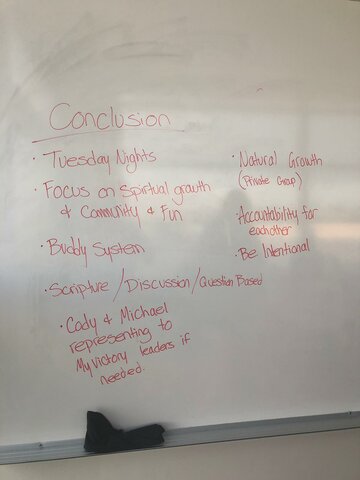 Conclusion
• Tuesday Nights
• Focus on Spirtual growth
& Community & Fun
• Buddy System
• Scripture / Discussion / Question Based
• Cody & Michael
representing to
My Victory leaders if
needed.
• Natural Growth
(Private Group)
• Accountability for
eachother
• Be Intentional